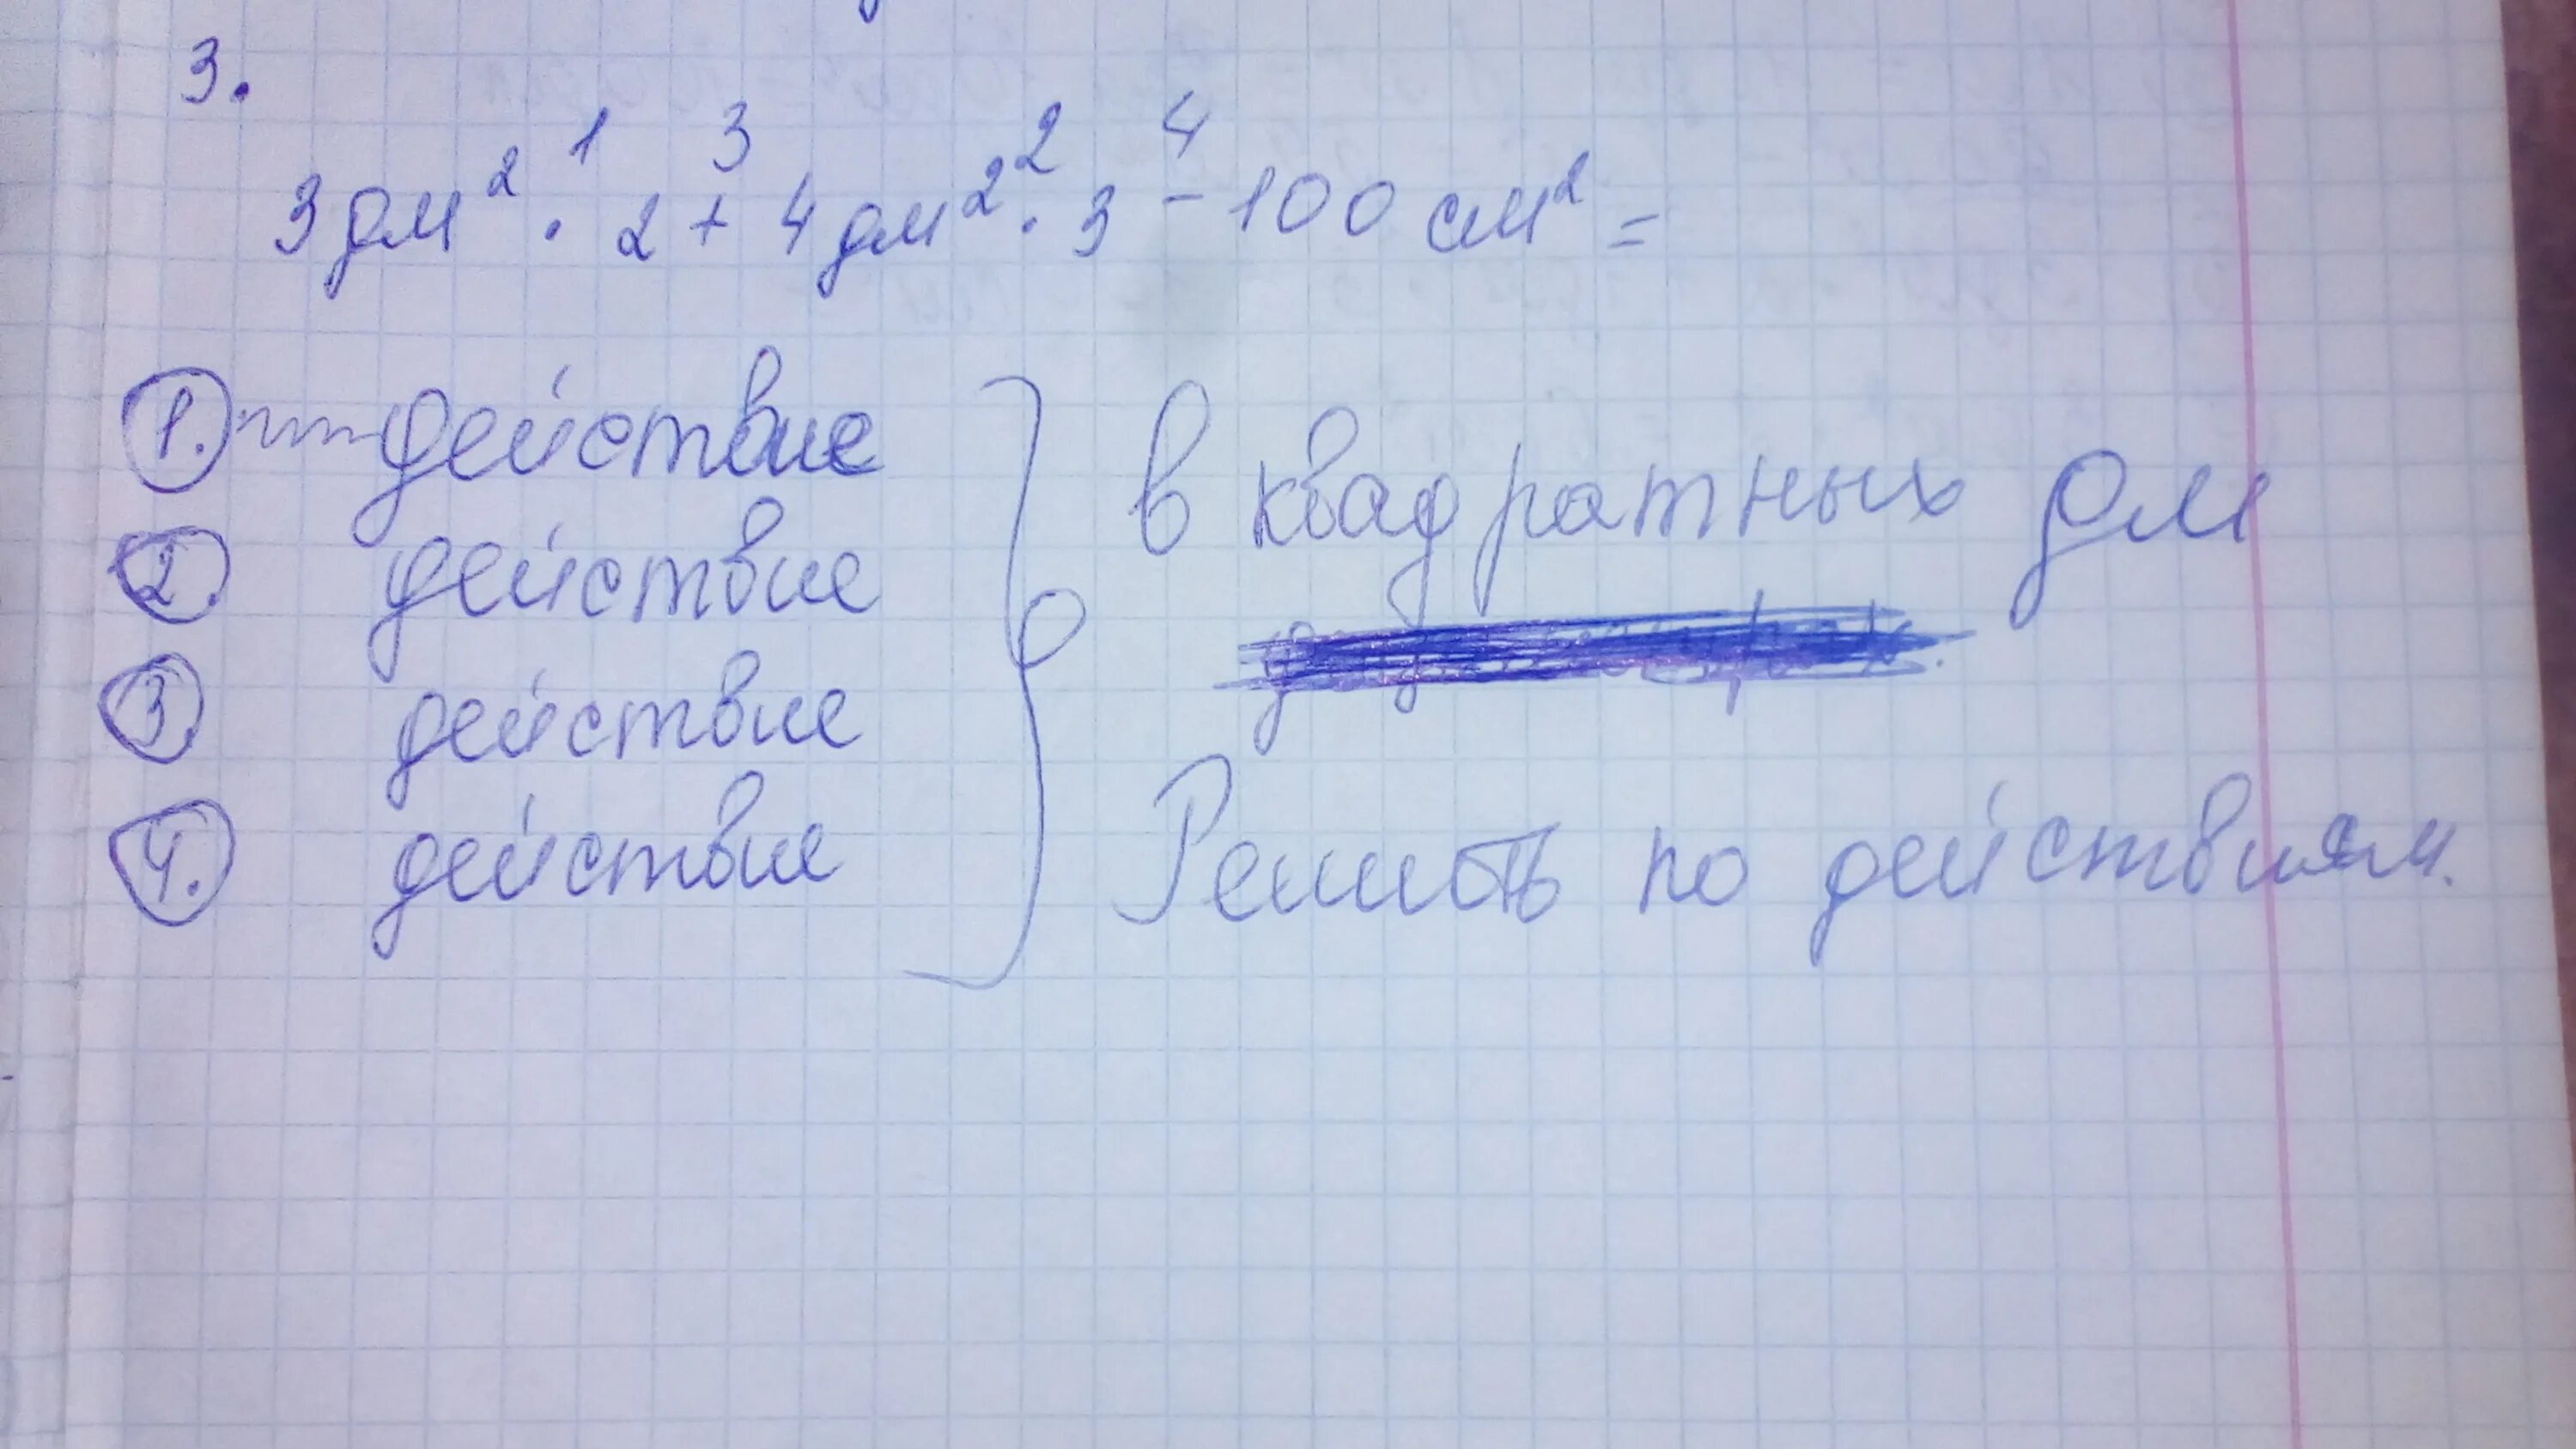 3.
1 3 2 4
3 дм² · 2 + 4 дм² · 3 - 100 см² =
1. действие
2. действие
3. действие
4. действие
в квадратных дм
Решить по действиям.